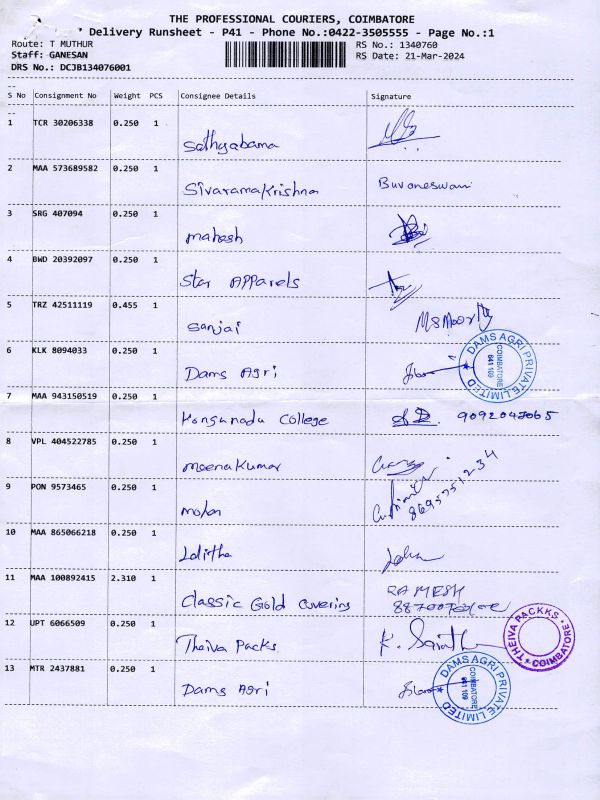 THE PROFESSIONAL COURIERS, COIMBATORE
Delivery Runsheet - P41 - Phone No.:0422-3505555 - Page No.:1
Route: T MUTHUR RS No.: 1340760
Staff: GANESAN RS Date: 21-Mar-2024
DRS No.: DCJB134076001
S No Consignment No Weight PCS Consignee Details Signature
1 TCR 30206338 0.250 1
Sathyabama
2 MAA 573689582 0.250 1
Sivaramakrishna Buvaneswari
3 SRG 407094 0.250 1
mahesh
4 BWD 20392097 0.250 1
Star Apparels
5 TRZ 42511119 0.455 1
Sanjai MSMoorthy
6 KLK 8094033 0.250 1
Dams Agri
DAMS AGRI PRIVATE LIMITED
COIMBATORE
641 109
7 MAA 943150519 0.250 1
Kongunadu College
8 VPL 404522785 0.250 1
Meenakumar
9 PON 9573465 0.250 1
Mohan 8695751234
10 MAA 865066218 0.250 1
Lalitha
11 MAA 100892415 2.310 1
Classic Gold Covering RAMESH
12 UPT 6066509 0.250 1
Thaiva Packs K. Sarath
THEIVA PACKKS
COIMBATORE
13 MTR 2437881 0.250 1
Dams Agri
DAMS AGRI PRIVATE LIMITED
COIMBATORE
641 109